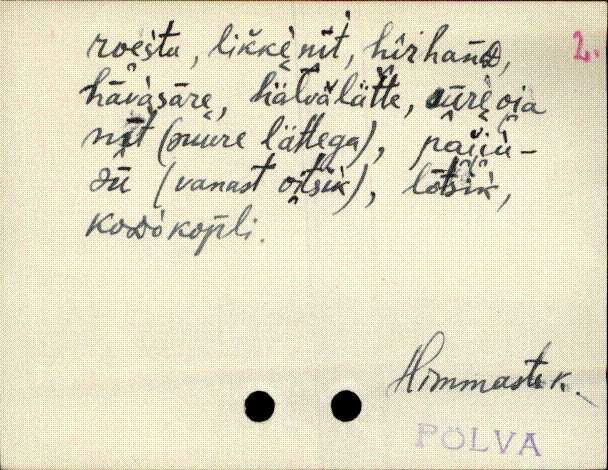 roešta, likkènit, hir̄hand, 2.
hāvàsāre, hälvälätte, sūrè oia
nīt (suure lättega), paiiu-
sū (vanast oitsik), lōtsik,
kodokopli.
Himmaste k.
PÕLVA